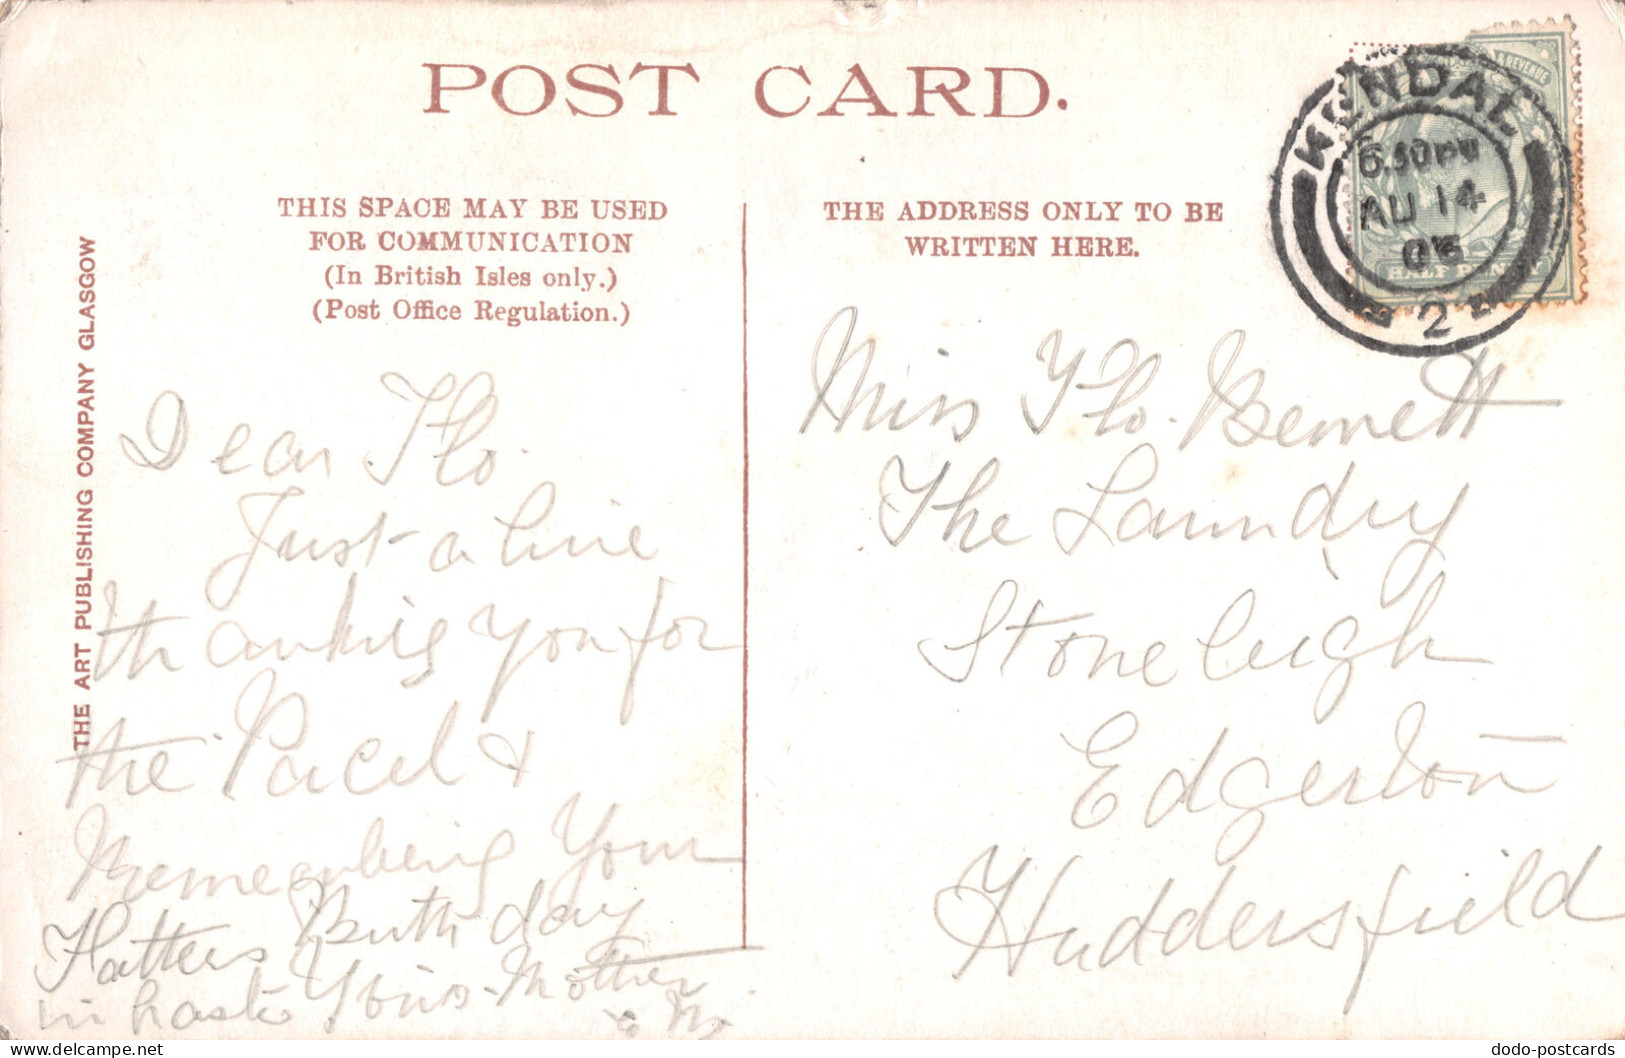 POST CARD.
THIS SPACE MAY BE USED
FOR COMMUNICATION
(In British Isles only.)
(Post Office Regulation.)
THE ADDRESS ONLY TO BE
WRITTEN HERE.
THE ART PUBLISHING COMPANY GLASGOW
& REVENUE
KENDAL
6.30 PM
AU 14
2
HALF PENNY
Dear Flo.
Just a line
thanking you for
the Parcel &
Remembering your
Fathers Birthday
in haste Yours Mother
Miss Flo. Bennett
The Laundry
Stoneleigh
Edgerton
Huddersfield
dodo-postcards